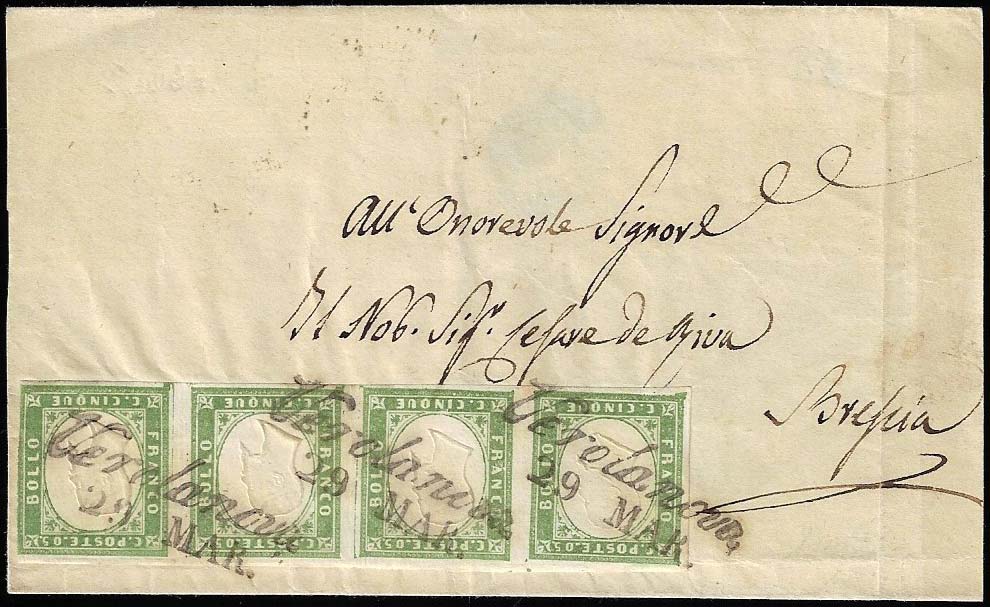 All' Onorevole Signore
Il Nob. Sigr. Cesare de
Brescia
C. CINQUE C. CINQUE C. CINQUE C. CINQUE
BOLLO FRANCO BOLLO FRANCO BOLLO FRANCO BOLLO FRANCO
C. POSTE 05 C. POSTE 05 C. POSTE 05 C. POSTE 05
Verolanova
29 MAR.
Verolanova
29 MAR.
Verolanova
29 MAR.